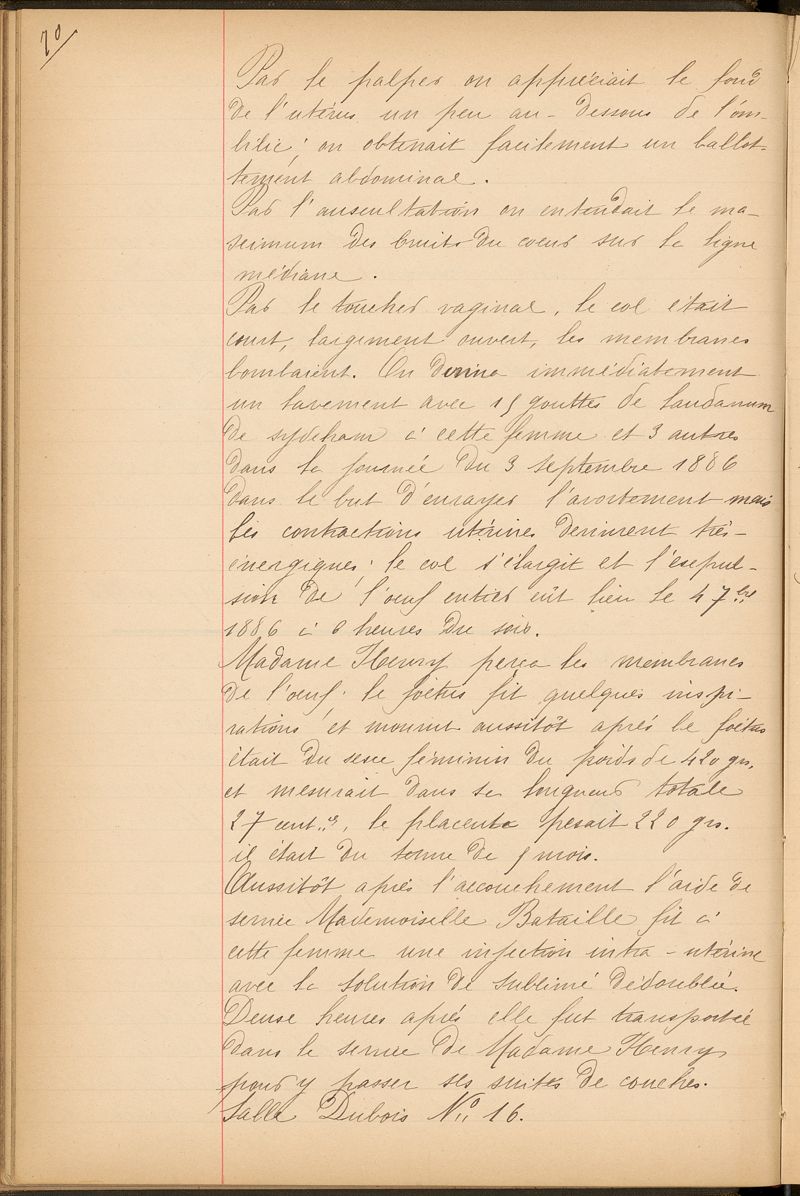 70
Par le palper on appréciait le fond
de l'utérus un peu au-dessous de l'om-
bilic; on obtenait facilement un ballot-
tement abdominal.
Par l'auscultation on entendait le ma-
scimum des bruits du coeur sur la ligne
médiane.
Par le toucher vaginal, le col était
court, largement ouvert, les membranes
bombaient. On donna immédiatement
un lavement avec 15 gouttes de laudanum
de sydeham à cette femme et 3 autres
dans la journée du 3 septembre 1886
dans le but d'enrayer l'avortement mais
les contractions utérines devinrent très-
énergiques; le col s'élargit et l'esepul-
sion de l'oeuf entier eût lieu le 4 7bre
1886 à heures du soir.
Madame Henry perça les membranes
de l'oeuf; le foetus fit quelques inspi-
rations et mourut aussitôt après le foetus
était du sexe féminin du poids de 420 grs.
et mesurait dans sa longueur totale
27 cent.es, le placenta pesait 220 grs.
il était du terme de 5 mois.
Aussitôt après l'accouchement l'aide de
service Mademoiselle Bataille fit à
cette femme une injection intra-utérine
avec la solution de sublimé dédoublée.
Deuse heures après elle fut transportée
dans le service de Madame Henry
pour y passer ses suites de couches.
Salle Dubois No 16.